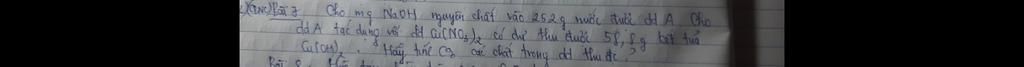 Bài 7 Cho mg NaOH nguyên chất vào 252g nước được dd A. Cho
dd A tác dụng với dd Cu(NO3)2 có dư thu được 58,8g kết tủa
Cu(OH)2. Hãy tính C% các chất trong dd thu đc?
Bài 8